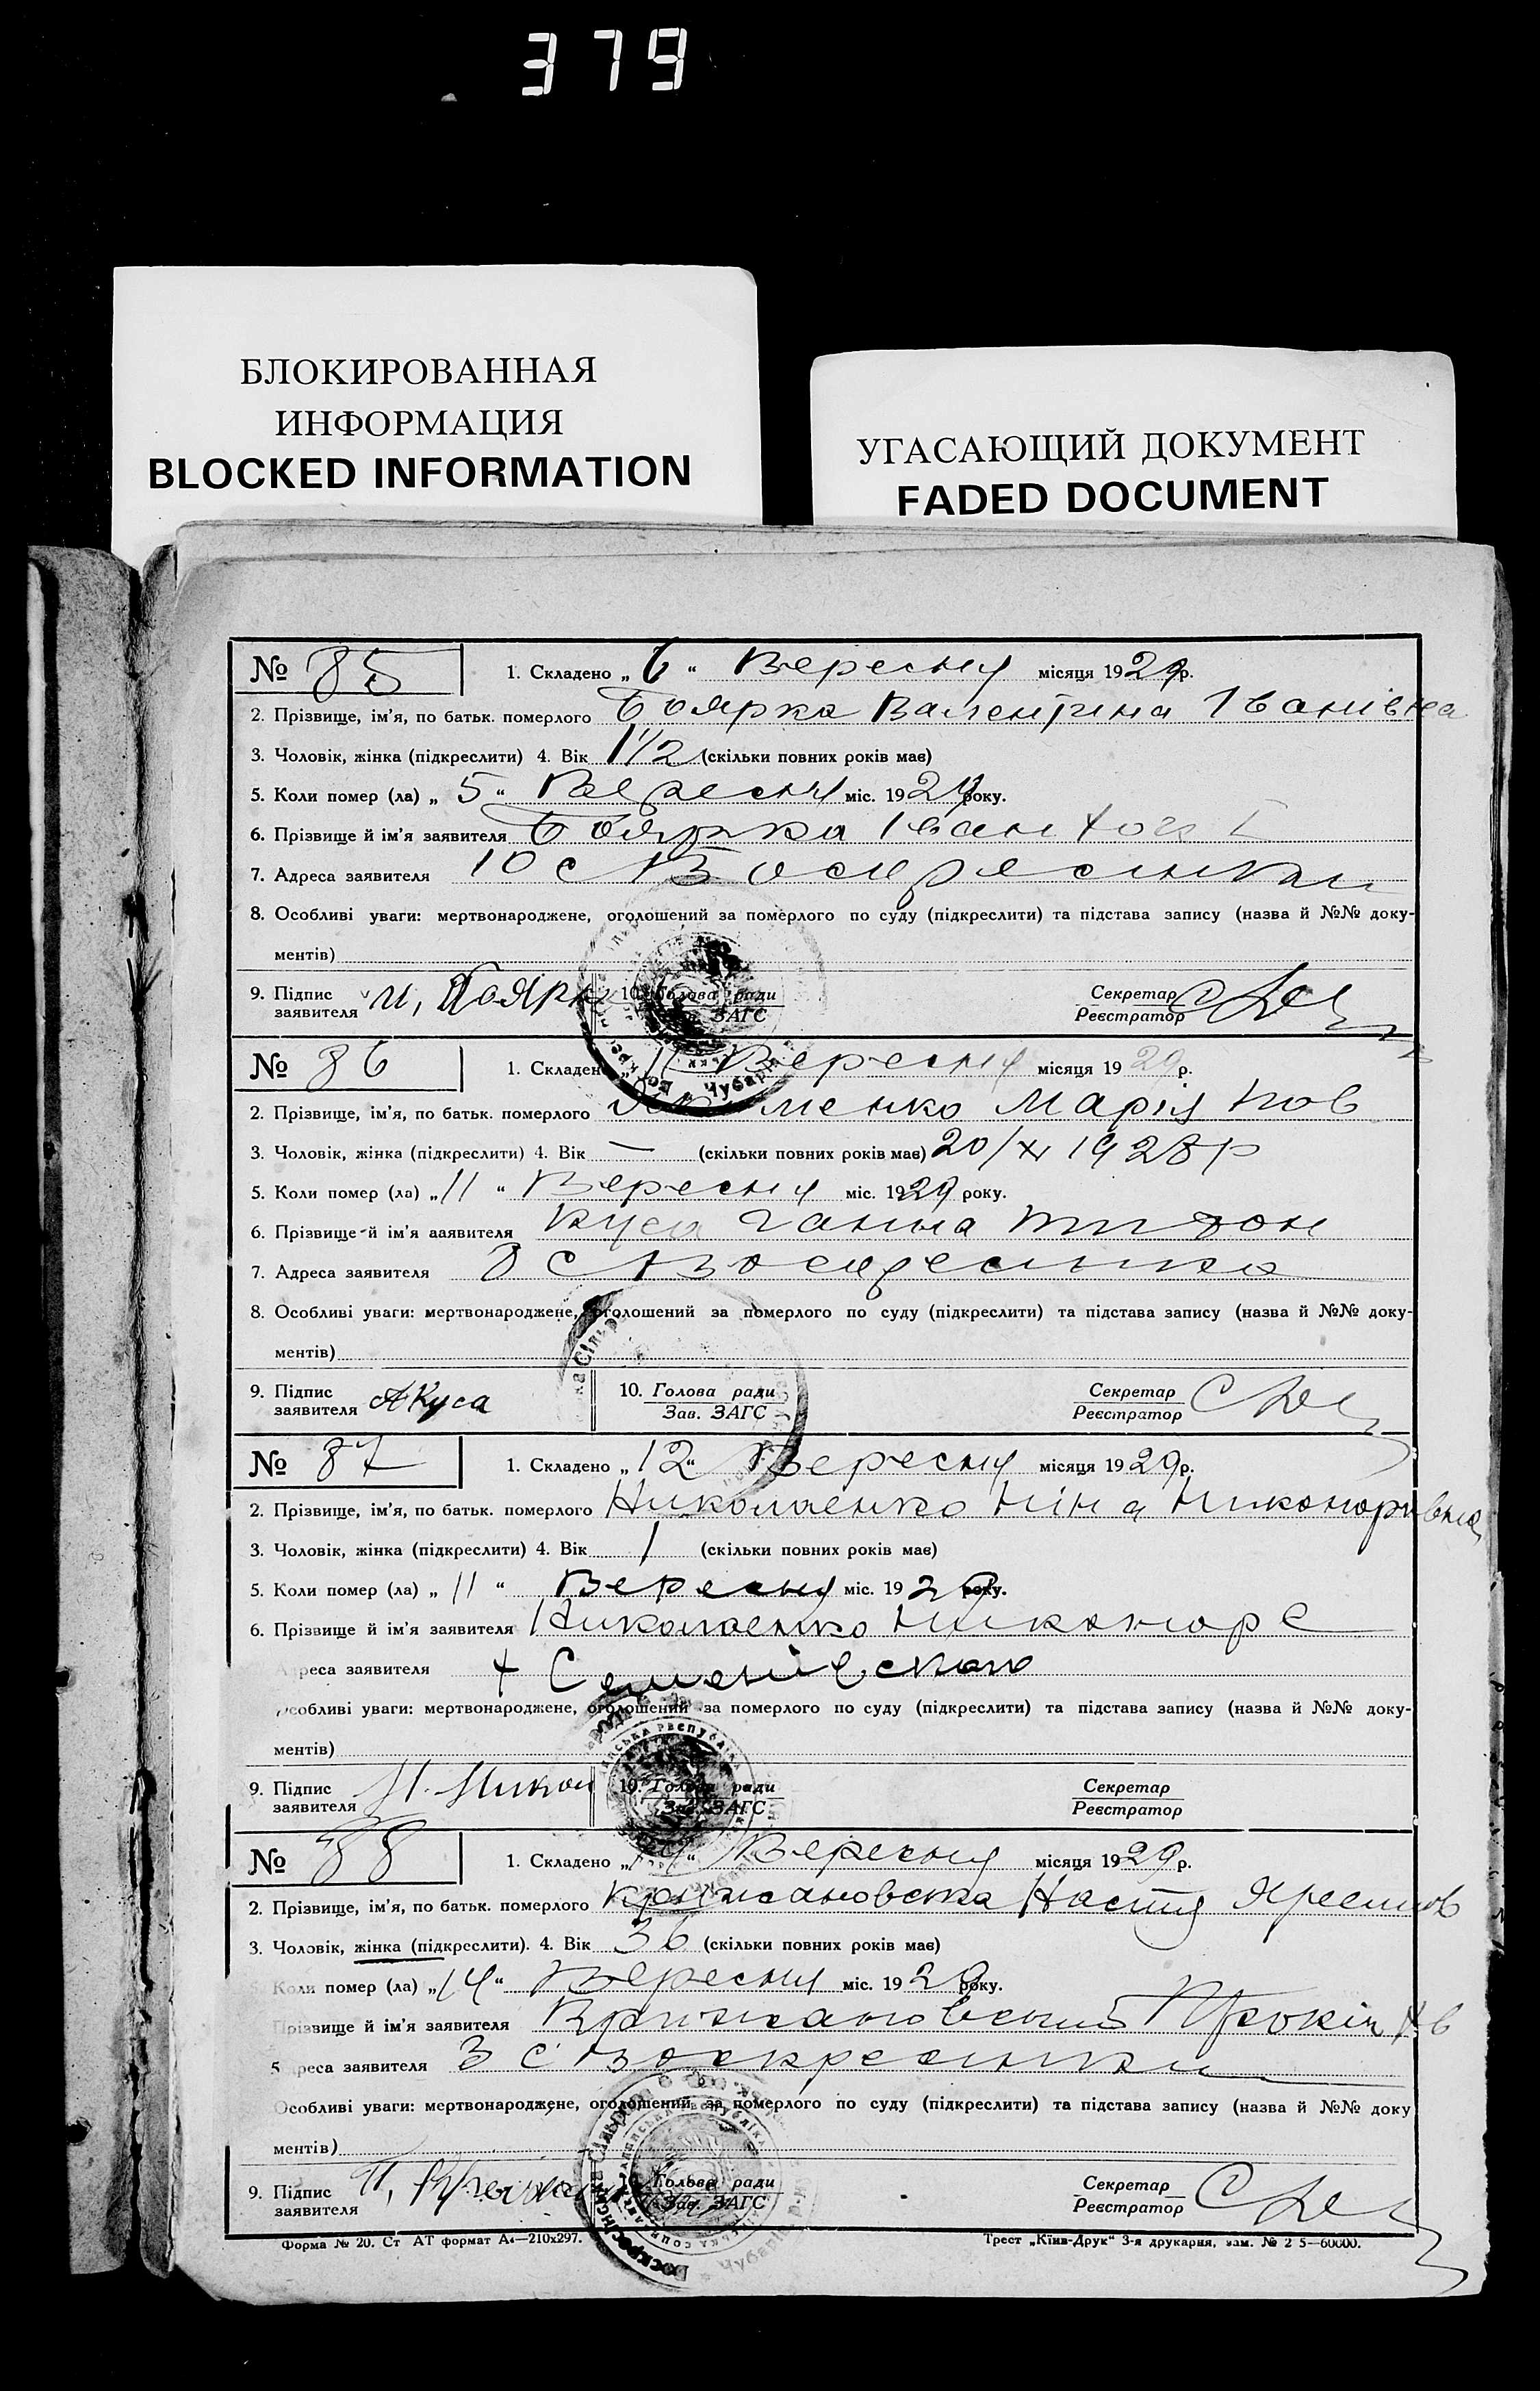 379
БЛОКИРОВАННАЯ
ИНФОРМАЦИЯ
BLOCKED INFORMATION
УГАСАЮЩИЙ ДОКУМЕНТ
FADED DOCUMENT
№ 85 1. Складено „ 6 “ Вересня місяця 1929р.
2. Прізвище, ім'я, по батьк. померлого Боярка Валентина Іванівна
3. Чоловік, жінка (підкреслити) 4. Вік 1 1/2 (скільки повних років має)
5. Коли помер (ла) „ 5 “ Вересня міс. 1929 року.
6. Прізвище й ім'я заявителя Боярка Іван
7. Адреса заявителя 10 с
8. Особливі уваги: мертвонароджене, оголошений за померлого по суду (підкреслити) та підстава запису (назва й №№ доку-
ментів)
9. Підпис заявителя И, Боярка 10. Голова ради ЗАГС Секретар Реєстратор
№ 86 1. Складено „ 11 Вересня місяця 1929р.
2. Прізвище, ім'я, по батьк. померлого Марія
3. Чоловік, жінка (підкреслити) 4. Вік — (скільки повних років має) 20/XI 1928р
5. Коли помер (ла) „ 11 “ Вересня міс. 1929 року.
6. Прізвище й ім'я заявителя Куса Ганна
7. Адреса заявителя с
8. Особливі уваги: мертвонароджене, оголошений за померлого по суду (підкреслити) та підстава запису (назва й №№ доку-
ментів)
9. Підпис заявителя АКуса 10. Голова ради Зав. ЗАГС Секретар Реєстратор
№ 87 1. Складено „ 12 “ Вересня місяця 1929р.
2. Прізвище, ім'я, по батьк. померлого Николаенко Ніна Никоноровна
3. Чоловік, жінка (підкреслити) 4. Вік 1 (скільки повних років має)
5. Коли помер (ла) „ 11 “ Вересня міс. 1929 року.
6. Прізвище й ім'я заявителя Николаенко Никонор С
Адреса заявителя х Семенівского
Особливі уваги: мертвонароджене, оголошений за померлого по суду (підкреслити) та підстава запису (назва й №№ доку-
ментів)
9. Підпис заявителя Н. Никол 10. Голова ради Зав. ЗАГС Секретар Реєстратор
№ 88 1. Складено „ 14 “ Вересня місяця 1929р.
2. Прізвище, ім'я, по батьк. померлого Крижановська Настя
3. Чоловік, жінка (підкреслити). 4. Вік 36 (скільки повних років має)
Коли помер (ла) „ 14 “ Вересня міс. 1929 року.
Прізвище й ім'я заявителя Крижановський Прокіп
Адреса заявителя 3 с Воскресенка
Особливі уваги: мертвонароджене, оголошений за померлого по суду (підкреслити) та підстава запису (назва й №№ доку
ментів)
9. Підпис заявителя П, 10. Голова ради Зав. ЗАГС Секретар Реєстратор
Форма № 20. Ст АТ формат А4—210х297.
Трест „Київ-Друк“ 3-я друкарня, зам. № 2 5—60000.